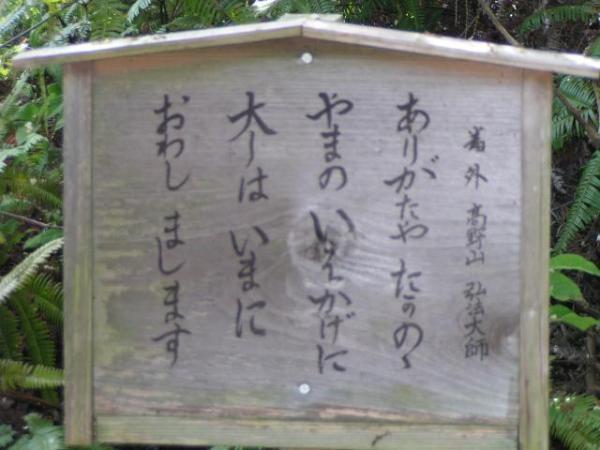 番外 高野山 弘法大師
ありがたや たかのゝ
やまの いわかげに
大しは いまに
おわし まします